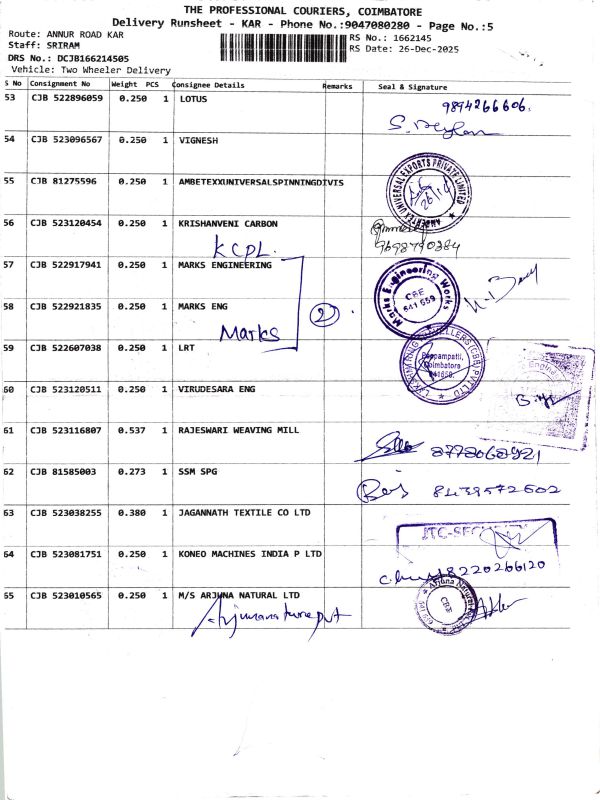 THE PROFESSIONAL COURIERS, COIMBATORE
Delivery Runsheet - KAR - Phone No.:9047080280 - Page No.:5
Route: ANNUR ROAD KAR
RS No.: 1662145
Staff: SRIRAM
RS Date: 26-Dec-2025
DRS No.: DCJB166214505
Vehicle: Two Wheeler Delivery
S No Consignment No Weight PCS Consignee Details Remarks Seal & Signature
53 CJB 522896059 0.250 1 LOTUS 9894266606.
54 CJB 523096567 0.250 1 VIGNESH
55 CJB 81275596 0.250 1 AMBETEXXUNIVERSALSPINNINGDIVIS
UNIVERSAL EXPORTS PRIVATE LIMITED
56 CJB 523120454 0.250 1 KRISHANVENI CARBON
KCPL.
57 CJB 522917941 0.250 1 MARKS ENGINEERING
Marks Engineering Works
CBE
641 659
58 CJB 522921835 0.250 1 MARKS ENG
2
Marks
59 CJB 522607038 0.250 1 LRT
Coimbatore
60 CJB 523120511 0.250 1 VIRUDESARA ENG
61 CJB 523116807 0.537 1 RAJESWARI WEAVING MILL
8778068921
62 CJB 81585003 0.273 1 SSM SPG
8439572602
63 CJB 523038255 0.380 1 JAGANNATH TEXTILE CO LTD
64 CJB 523081751 0.250 1 KONEO MACHINES INDIA P LTD
8220266120
65 CJB 523010565 0.250 1 M/S ARJUNA NATURAL LTD
Arjuna Natural
CBE